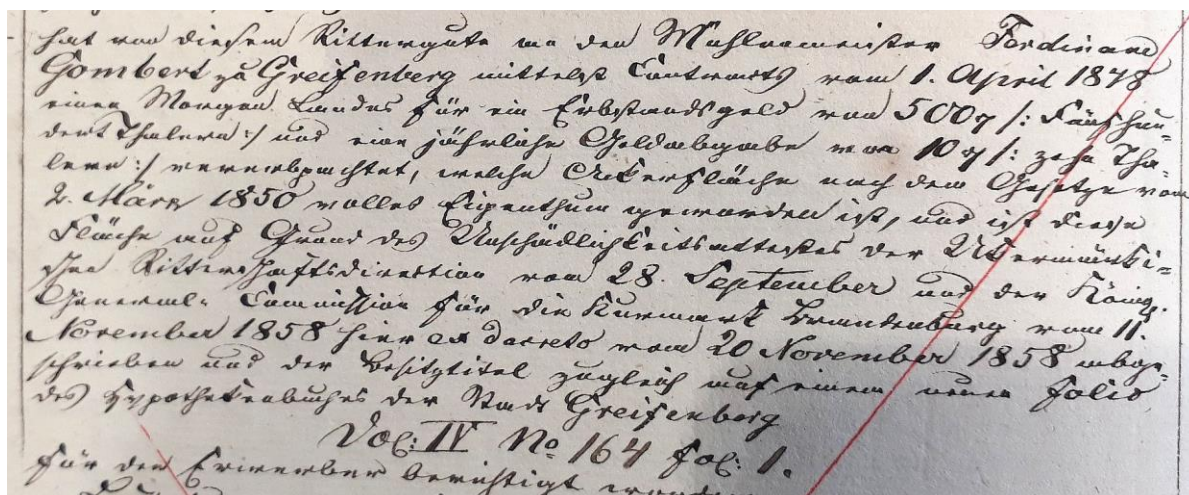 hat von diesem Rittergute an den Mühlenmeister Ferdinand
Gombert zu Greifenberg mittelst Contracts vom 1. April 1848
einen Morgen Landes für ein Erbstandsgeld von 500 /: Fünfhun-
dert Thalern :/ und eine jährliche Geldabgabe von 10 /: zehn Tha-
lern :/ vererbpachtet, welche Ackerfläche nach dem Gesetze vom
2. März 1850 volles Eigenthum geworden ist, und ist diese
Fläche auf Grund des Unschädlichkeitsattestes der Uckermärki-
schen Ritterschaftsdirection vom 28. September und der Königl.
General-Commission für die Kurmark Brandenburg vom 11.
November 1858 hier ex decreto vom 20 November 1858 abge-
schrieben und der Besitztitel zugleich auf einem neuen Folio
des Hypothekenbuches der Stadt Greifenberg
Vol: IV No 164 fol: 1.
für den Erwerber berichtigt worden